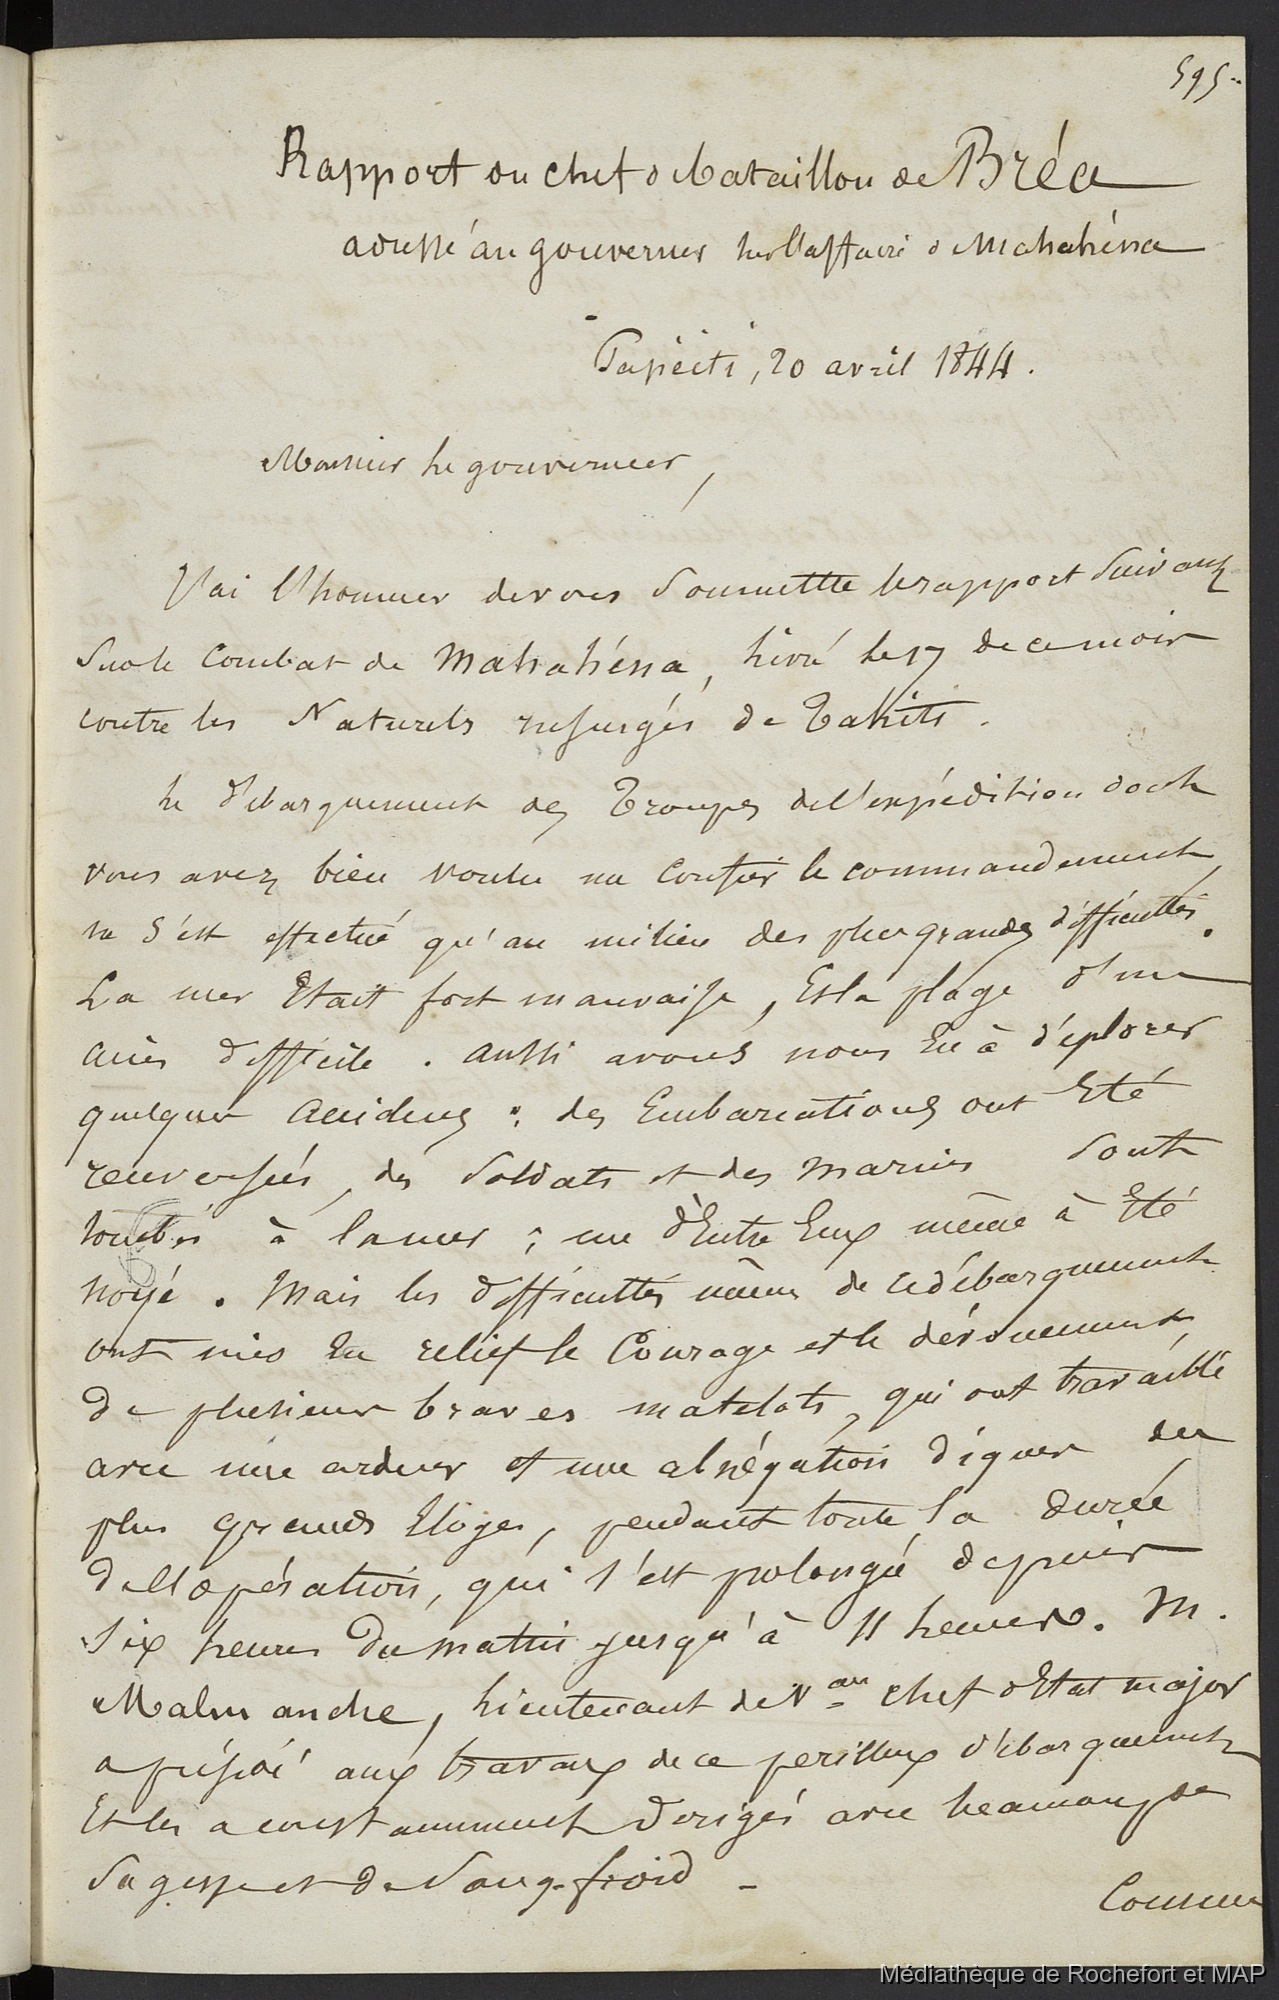 595
Rapport du chef de bataillon de Bréa
adressé au gouverneur sur l'affaire de Mahahéna
Papéiti, 20 avril 1844.
Monsieur le gouverneur,
J'ai l'honneur de vous soumettre le rapport suivant
sur le combat de Mahahéna, livré le 17 de ce mois
contre les Naturels insurgés de Tahiti.
Le débarquement des Troupes de l'expédition dont
vous avez bien voulu me confier le commandement,
ne s'est effectué qu'au milieu des plus grandes difficultés.
La mer Etait fort mauvaise, Et la plage d'un
accès difficile. aussi avons nous Eu à déplorer
quelques accidens : des Embarcations ont Eté
renversées, des soldats et des marins sont
tombés à la mer ; un d'Entre Eux même à Eté
noyé. Mais les difficultés même de ce débarquement
ont mis En relief le Courage et le dévouement,
de plusieurs braves matelots, qui ont travaillé
avec une ardeur et une abnégation dignes des
plus grands Eloges, pendant toute la durée
de l'opération, qui s'est prolongée depuis
six heures du matin jusqu'à 11 heures. M.
Malmanche, Lieutenant de Vau chef d'Etat major
a présidé aux travaux de ce perilleux débarquement
Et les a constamment dirigés avec beaucoup de
sagesse et de sang-froid -
Comme
Médiathèque de Rochefort et MAP